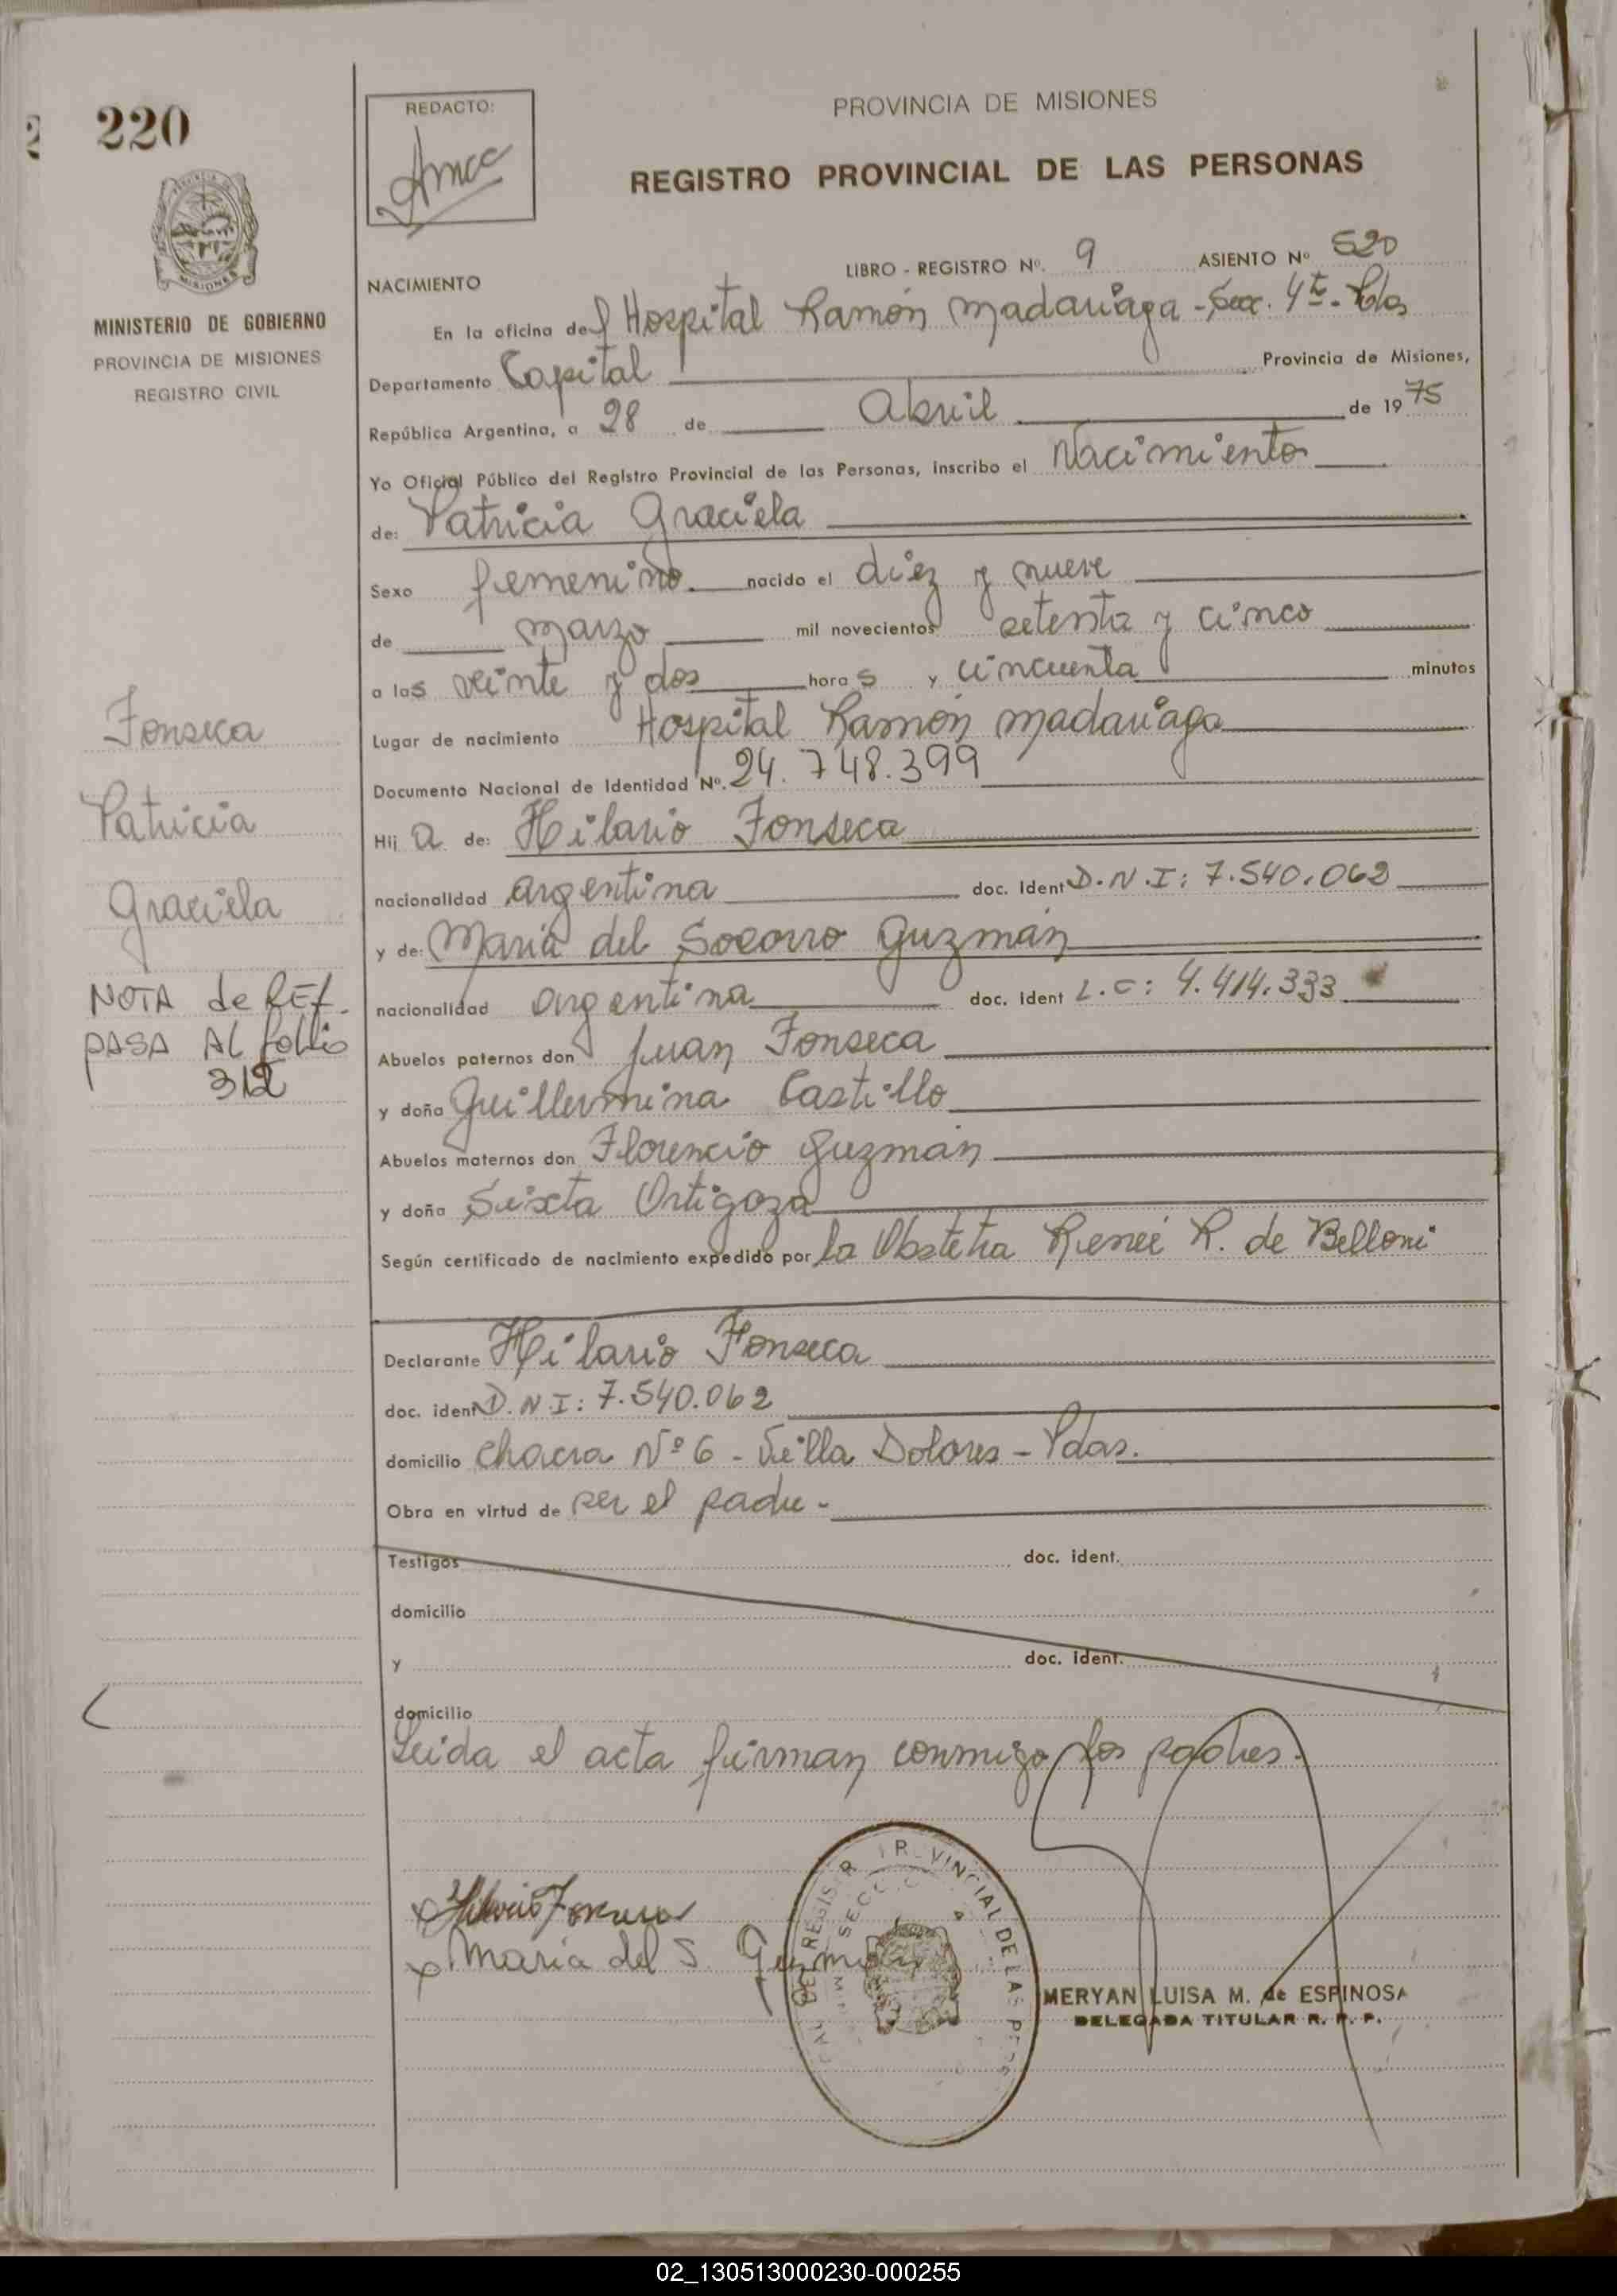 220
REDACTO:
PROVINCIA DE MISIONES
REGISTRO PROVINCIAL DE LAS PERSONAS
MINISTERIO DE GOBIERNO
PROVINCIA DE MISIONES
REGISTRO CIVIL
LIBRO - REGISTRO Nº. 9 ASIENTO Nº 520
NACIMIENTO
En la oficina del Hospital Ramón Madariaga - Secc. 4ta -
Departamento Capital Provincia de Misiones,
República Argentina, a 28 de Abril de 1975
Yo Oficial Público del Registro Provincial de las Personas, inscribo el Nacimiento
de: Patricia Graciela
Sexo femenino nacido el diez y nueve
de marzo mil novecientos setenta y cinco
a las veinte y dos horas y cincuenta minutos
Lugar de nacimiento Hospital Ramón Madariaga
Documento Nacional de Identidad Nº. 24.748.399
Hij a de: Hilario Fonseca
nacionalidad argentina doc. Ident D.N.I: 7.540.062
y de: María del Socorro Guzmán
nacionalidad argentina doc. ident L.C: 4.414.333
Abuelos paternos don Juan Fonseca
y doña Guillermina Castillo
Abuelos maternos don Florencio Guzmán
y doña Sixta Ortigoza
Según certificado de nacimiento expedido por la Obstetra Reneé R. de Belloni
Fonseca
Patricia
Graciela
NOTA de REF.
PASA AL folio
312
Declarante Hilario Fonseca
doc. ident D.N.I: 7.540.062
domicilio Chacra Nº 6 - Villa Dolores - Pdas.
Obra en virtud de ser el padre -
Testigos doc. ident.
domicilio
y doc. ident.
domicilio
Leida el acta firman conmigo los padres.
Hilario Fonseca
María del S. Guzmán
MERYAN LUISA M. de ESPINOSA
DELEGADA TITULAR R. P. P.
02_130513000230-000255